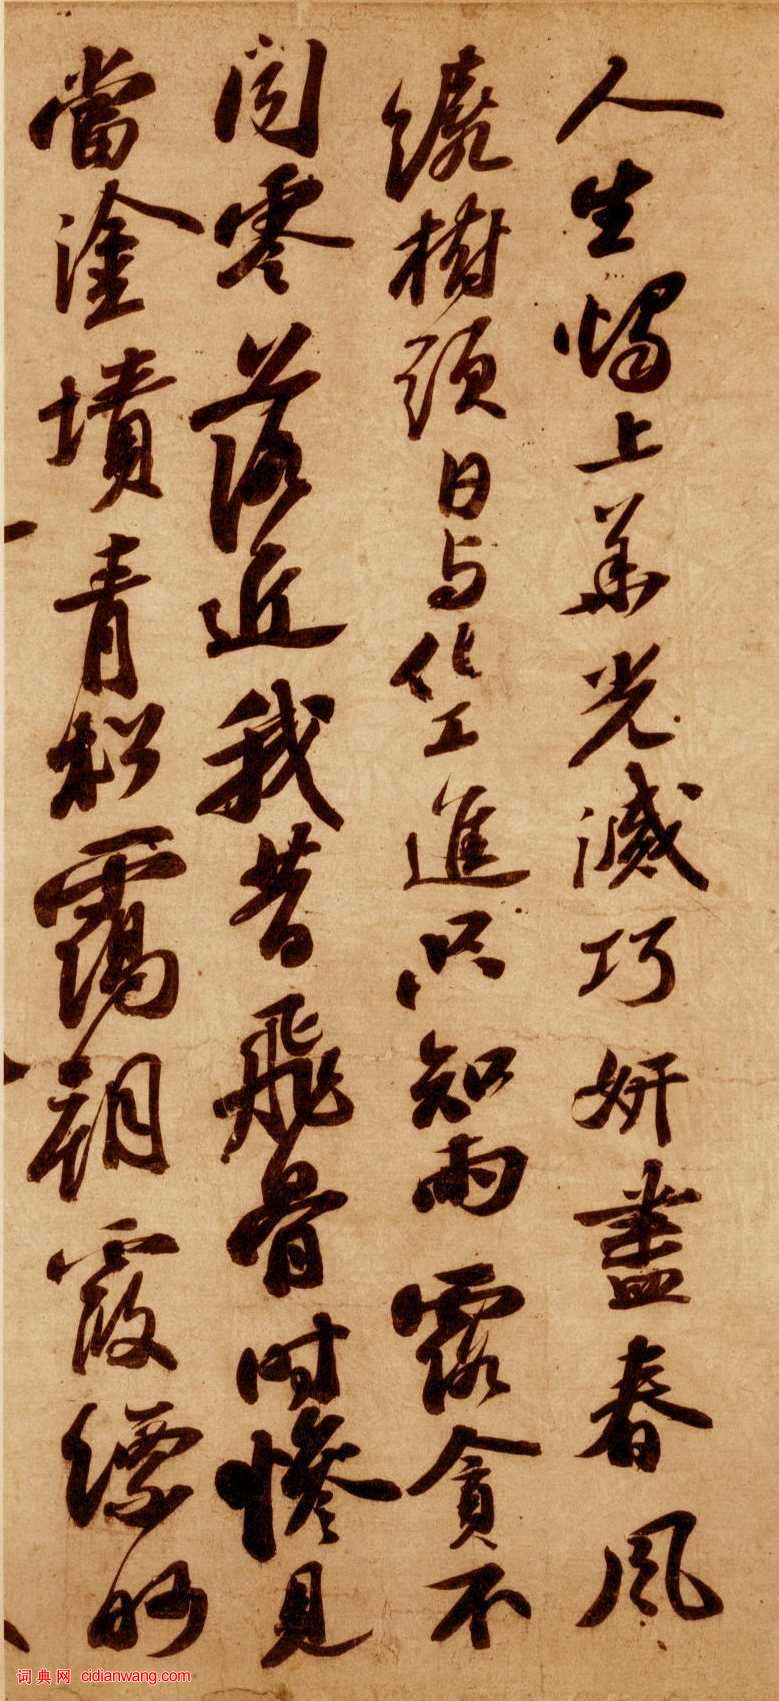 人生燭上華光滅巧妍盡春風
繞樹頭日与化工進只知雨露貪不
聞零落近我昔飛骨時慘見
當塗墳青松靄朝霞縹眇
词典网 cidianwang.com